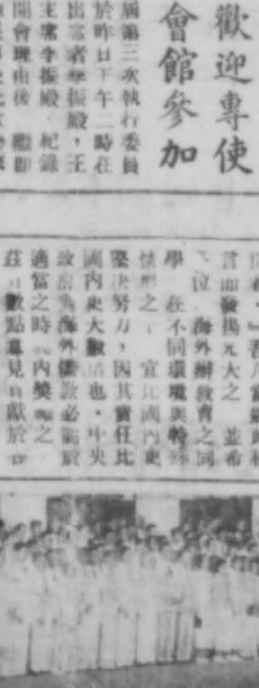 歡迎專使
會館參加
屆第三次執行委員
於昨日下午二時在
出席者李振殿，王
主席李振殿 紀錄
開會理由後 繼即
言而發揚光大之 並希
位 海外辦教育之同
學 在不同環境與特殊
情形之下 宜比國內更
堅决努力，因其責任比
國內更大數倍也，中央
政府為海外僑敎必需於
適當之時 內獎 之
茲 數點意見 獻於